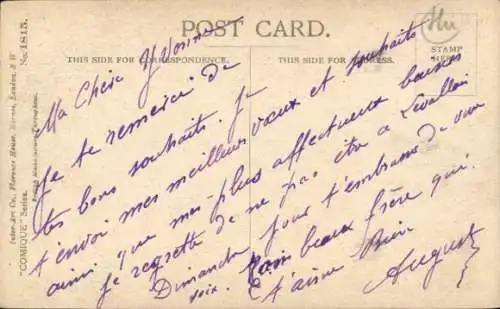 POST CARD.
THIS SIDE FOR CORRESPONDENCE.
THIS SIDE FOR
STAMP
HERE
Inter-Art Co., Florence House, Barnes, London, S.W
"COMIQUE" Series.
No. 1815.
British Manufacture Throughout.
Ma Chère Yvonne
je te remercie de
tes bons souhaits. Je
t'envoi mes meilleurs vœux et souhaits
ainsi que mes plus affectueux baisers
je regrette de ne pas être a Levallois
Dimanche pour t'embrasser de vive
voix. beaux frère qui
t'aime Bien
August